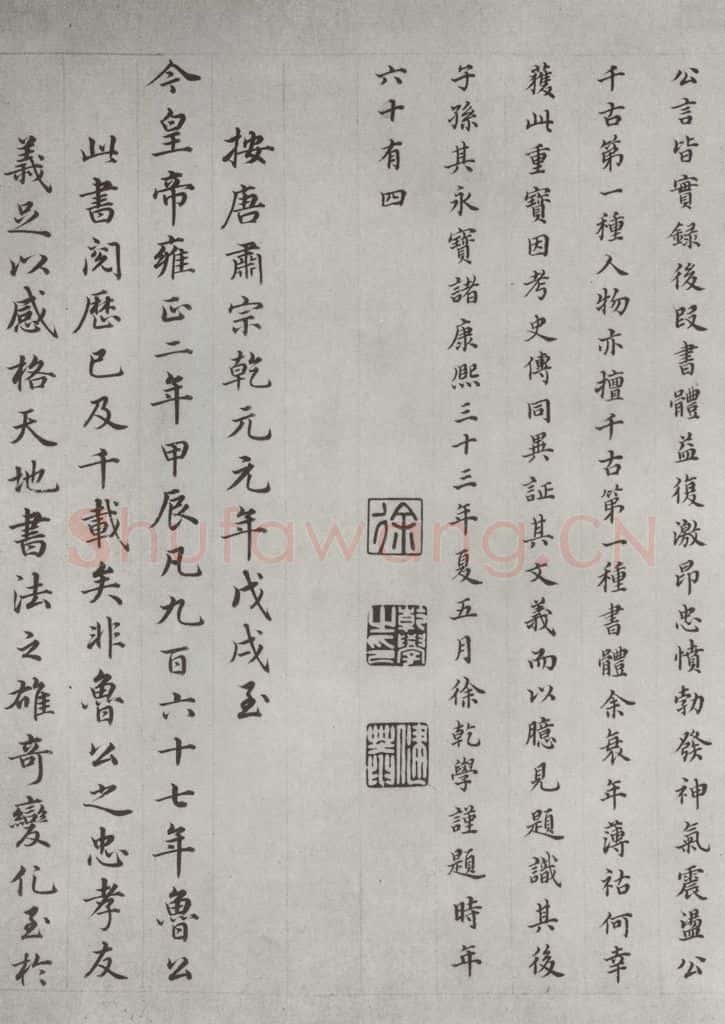 公言皆實録後段書體益復激昂忠憤勃發神氣震盪公
千古第一種人物亦擅千古第一種書體余衰年薄祜何幸
獲此重寶因考史傳同異証其文義而以臆見題識其後
子孫其永寶諸康熙三十三年夏五月徐乾學謹題時年
六十有四
徐
乾學之印
健菴
按唐肅宗乾元元年戊戌至
今皇帝雍正二年甲辰凡九百六十七年魯公
此書閱歷已及千載矣非魯公之忠孝友
義足以感格天地書法之雄奇變化至於
Shufawang.CN